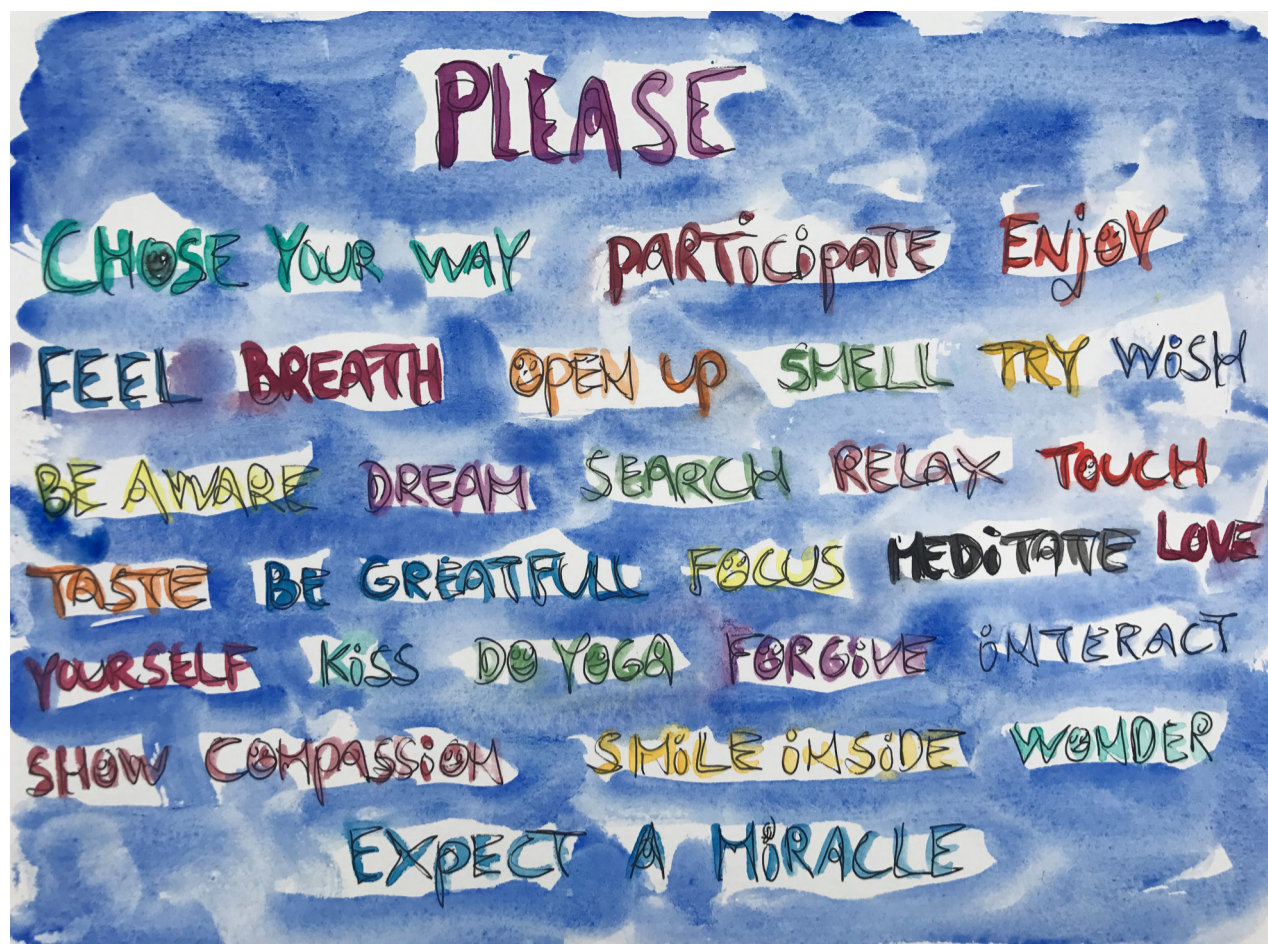 PLEASE
CHOSE YOUR WAY PARTiCiPATE ENjOY
FEEL BREATH OPEN UP SMELL TRY WiSH
BE AWARE DREAM SEARCH RELAX TOUCH
TASTE BE GREATFULL FOCUS MEDiTATE LOVE
YOURSELF KiSS DO YOGA FORGiVE iNTERACT
SHOW COMPASSiON SMiLE iNSiDE WONDER
EXPECT A MiRACLE